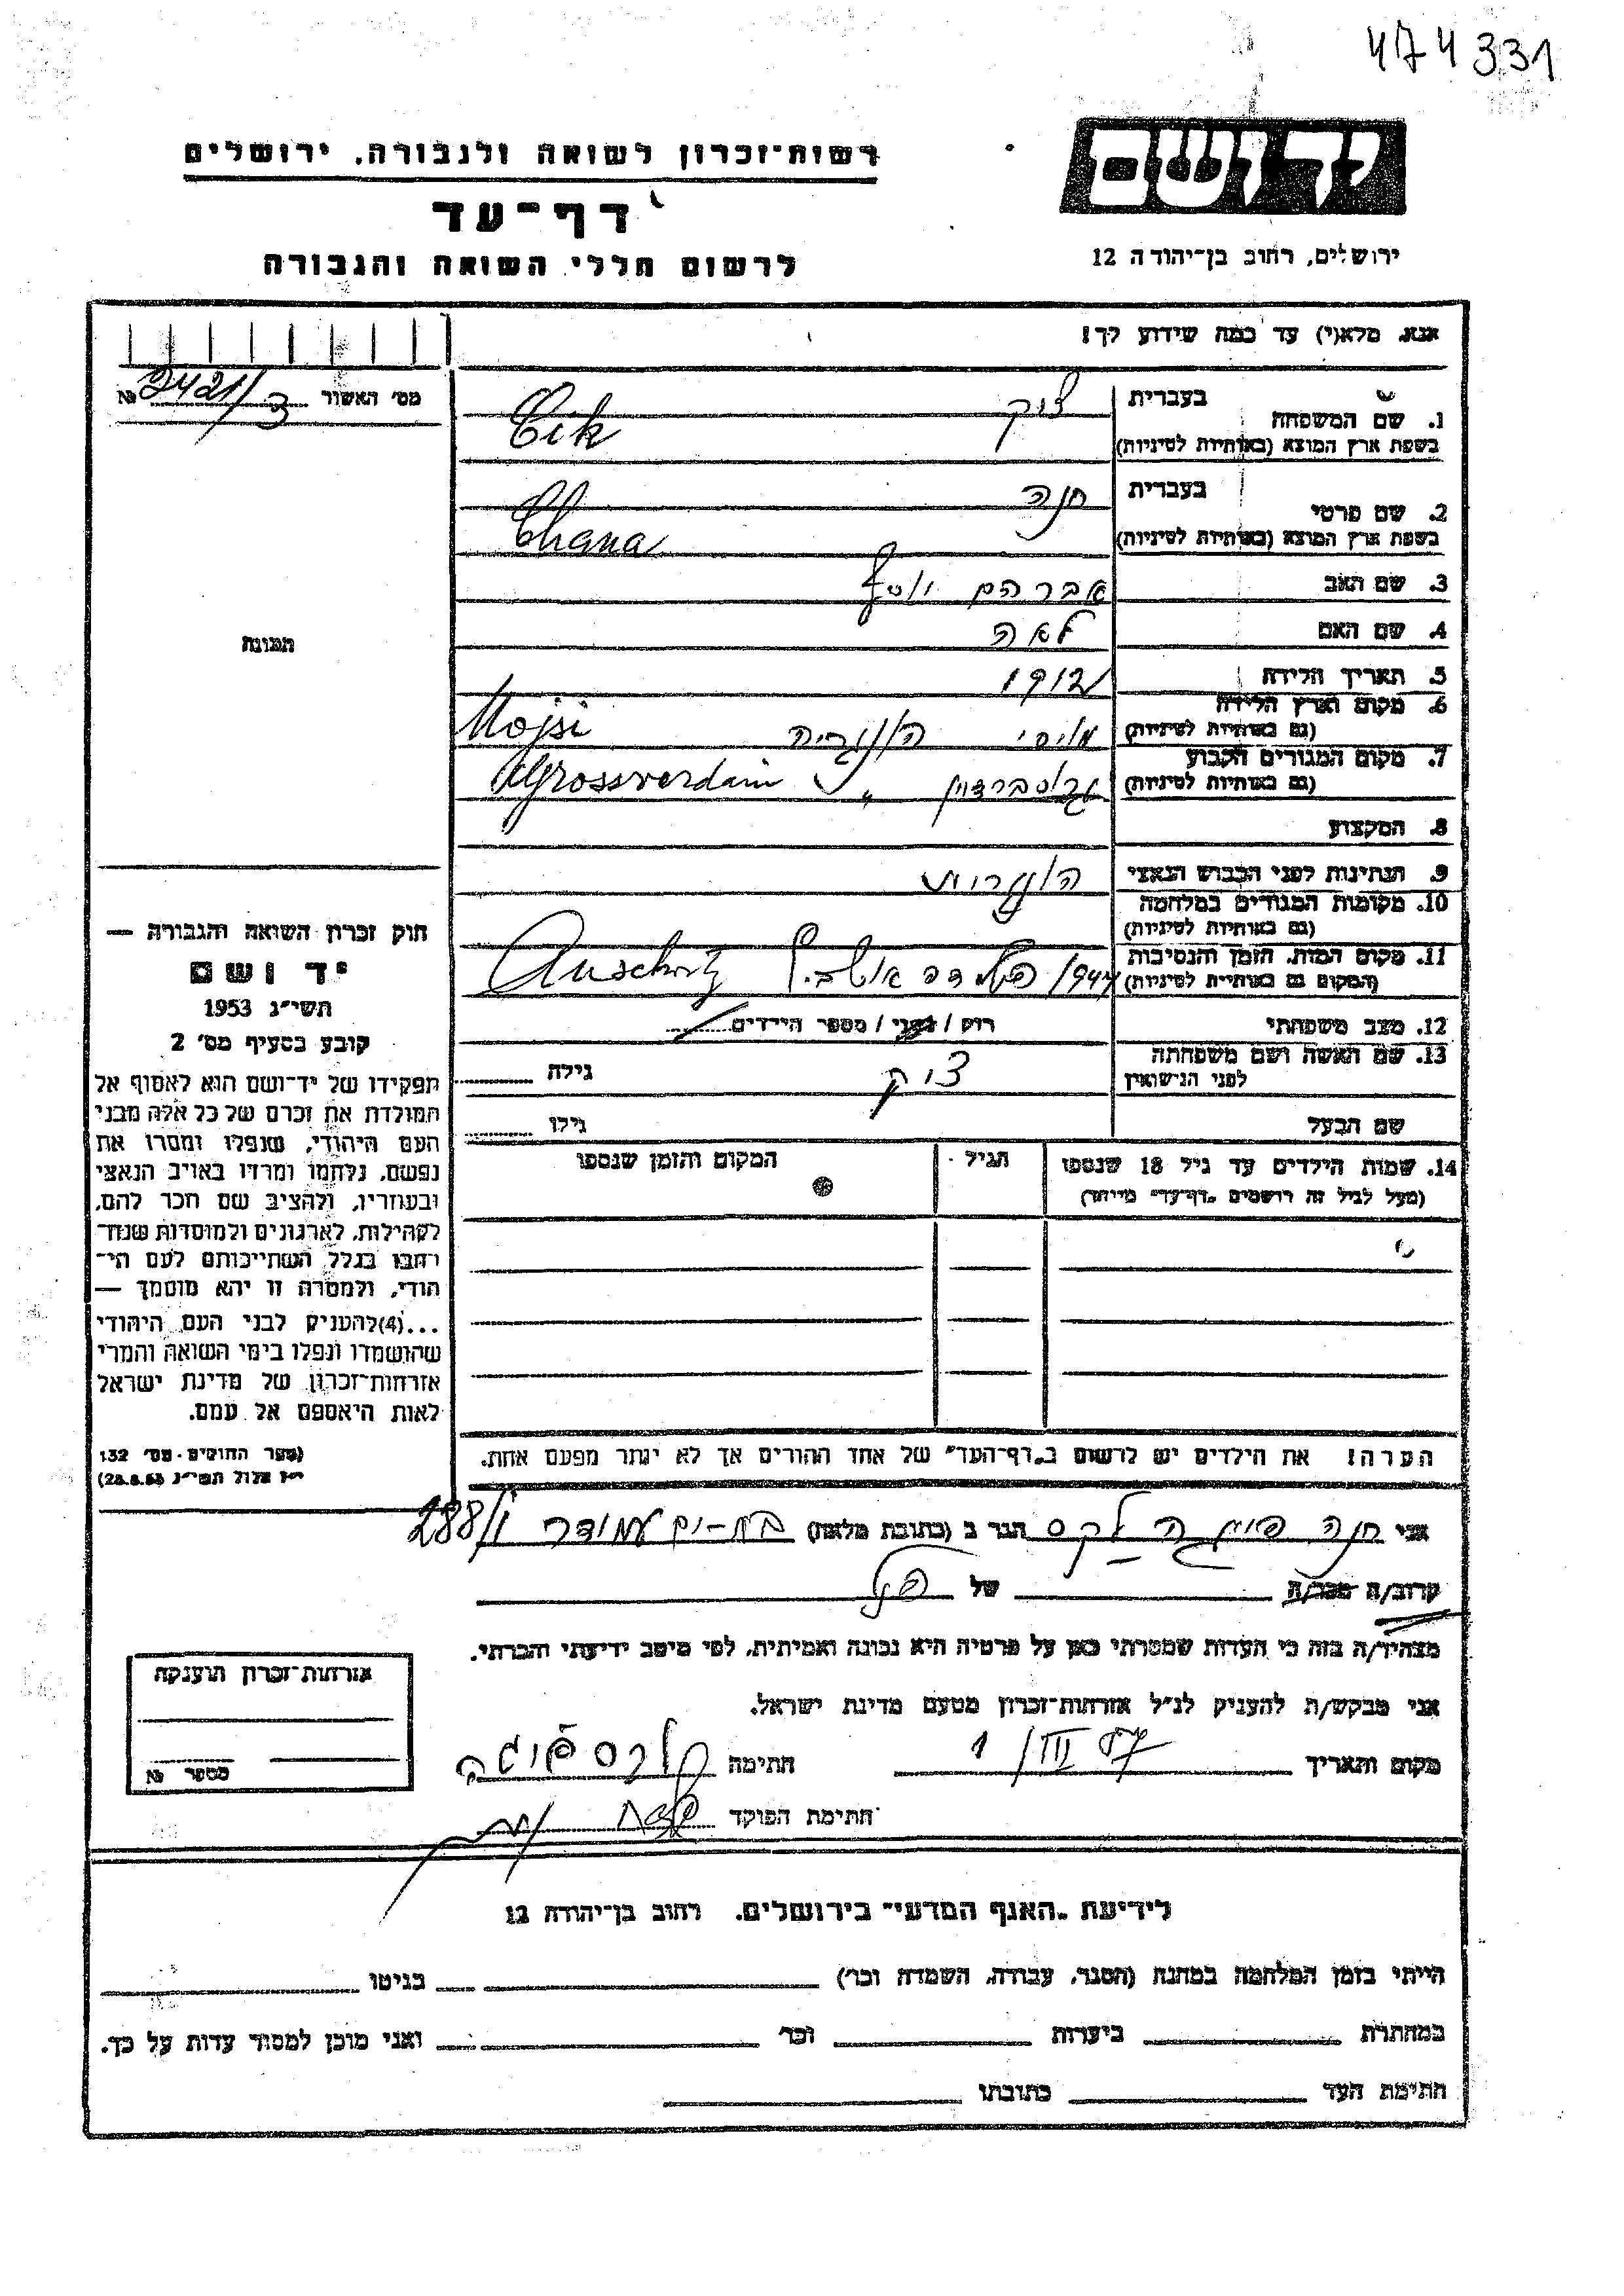 474331
רשות־זכרון לשואה ולגבורה, ירושלים
דף־עד
לרשום חללי השואה והגבורה
יד ושם
ירושלים, רחוב בן־יהודה 12
אנא, מלא(י) עד כמה שידוע לך!
מס׳ האשור № 2421/3
1. שם המשפחה
בעברית ציק
בשפת ארץ המוצא (באותיות לטיניות) Cik
2. שם פרטי
בעברית חנה
בשפת ארץ המוצא (באותיות לטיניות) Chana
3. שם האב אברהם יוסף
4. שם האם לאה
5. תאריך הלידה 1912
6. מקום וארץ הלידה (גם באותיות לטיניות) מויסי הונגריה Mojsi
7. מקום המגורים הקבוע (גם באותיות לטיניות) גרוסברדיין " Grossverdain
8. המקצוע
9. הנתינות לפני הכבוש הנאצי הונגרית
10. מקומות המגורים במלחמה (גם באותיות לטיניות)
11. מקום המות, הזמן והנסיבות (המקום גם באותיות לטיניות) 1944 Auschwitz
12. מצב משפחתי רוק / נשוי / מספר הילדים
13. שם האשה ושם משפחתה לפני הנישואין ציק גילה
שם הבעל גילו
14. שמות הילדים עד גיל 18 שנספו
(מעל לגיל זה רושמים „דף־עד" מיוחד)
הגיל
המקום והזמן שנספו
הערה! את הילדים יש לרשום ב„דף־העד" של אחד ההורים אך לא יותר מפעם אחת.
תמונה
חוק זכרון השואה והגבורה —
יד ושם
תשי״ג 1953
קובע בסעיף מס׳ 2
תפקידו של יד־ושם הוא לאסוף אל
המולדת את זכרם של כל אלה מבני
העם היהודי, שנפלו ומסרו את
נפשם, נלחמו ומרדו באויב הנאצי
ובעוזריו, ולהציב שם וזכר להם,
לקהילות, לארגונים ולמוסדות שנח־
רבו בגלל השתייכותם לעם הי־
הודי, ולמטרה זו יהא מוסמך —
...(4) להעניק לבני העם היהודי
שהושמדו ונפלו בימי השואה והמרי
אזרחות־זכרון של מדינת ישראל
לאות היאספם אל עמם.
(ספר החוקים מס׳ 132
י״ז אלול תשי״ג 28.8.53)
אני חנה פייגה לקס הגר ב (כתובת מלאה) בת-ים עמידר 288/1
קרוב/ה מכר/ה של הנ״ל
מצהיר/ה בזה כי העדות שמסרתי כאן על פרטיה היא נכונה ואמיתית, לפי מיטב ידיעתי והכרתי.
אני מבקש/ת להעניק לנ״ל אזרחות־זכרון מטעם מדינת ישראל.
מקום ותאריך 1/III 57 חתימה לקס פייגה
חתימת הפוקד
אזרחות־זכרון הוענקה
מספר №
לידיעת „האגף המדעי" בירושלים, רחוב בן־יהודה 12
הייתי בזמן המלחמה במחנה (הסגר, עבודה, השמדה וכו׳) בגיטו
במחתרת ביערות וכו׳ ואני מוכן למסור עדות על כך.
חתימת העד כתובתו